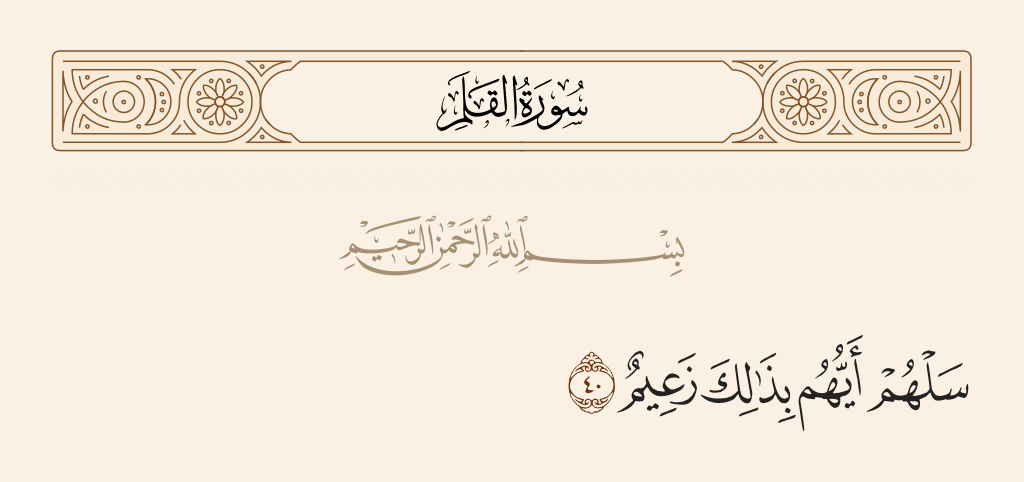 سُورَةُ القَلَمِ
بِسْمِ ٱللَّهِ ٱلرَّحْمَٰنِ ٱلرَّحِيمِ
سَلْهُمْ أَيُّهُم بِذَٰلِكَ زَعِيمٌ ٤٠